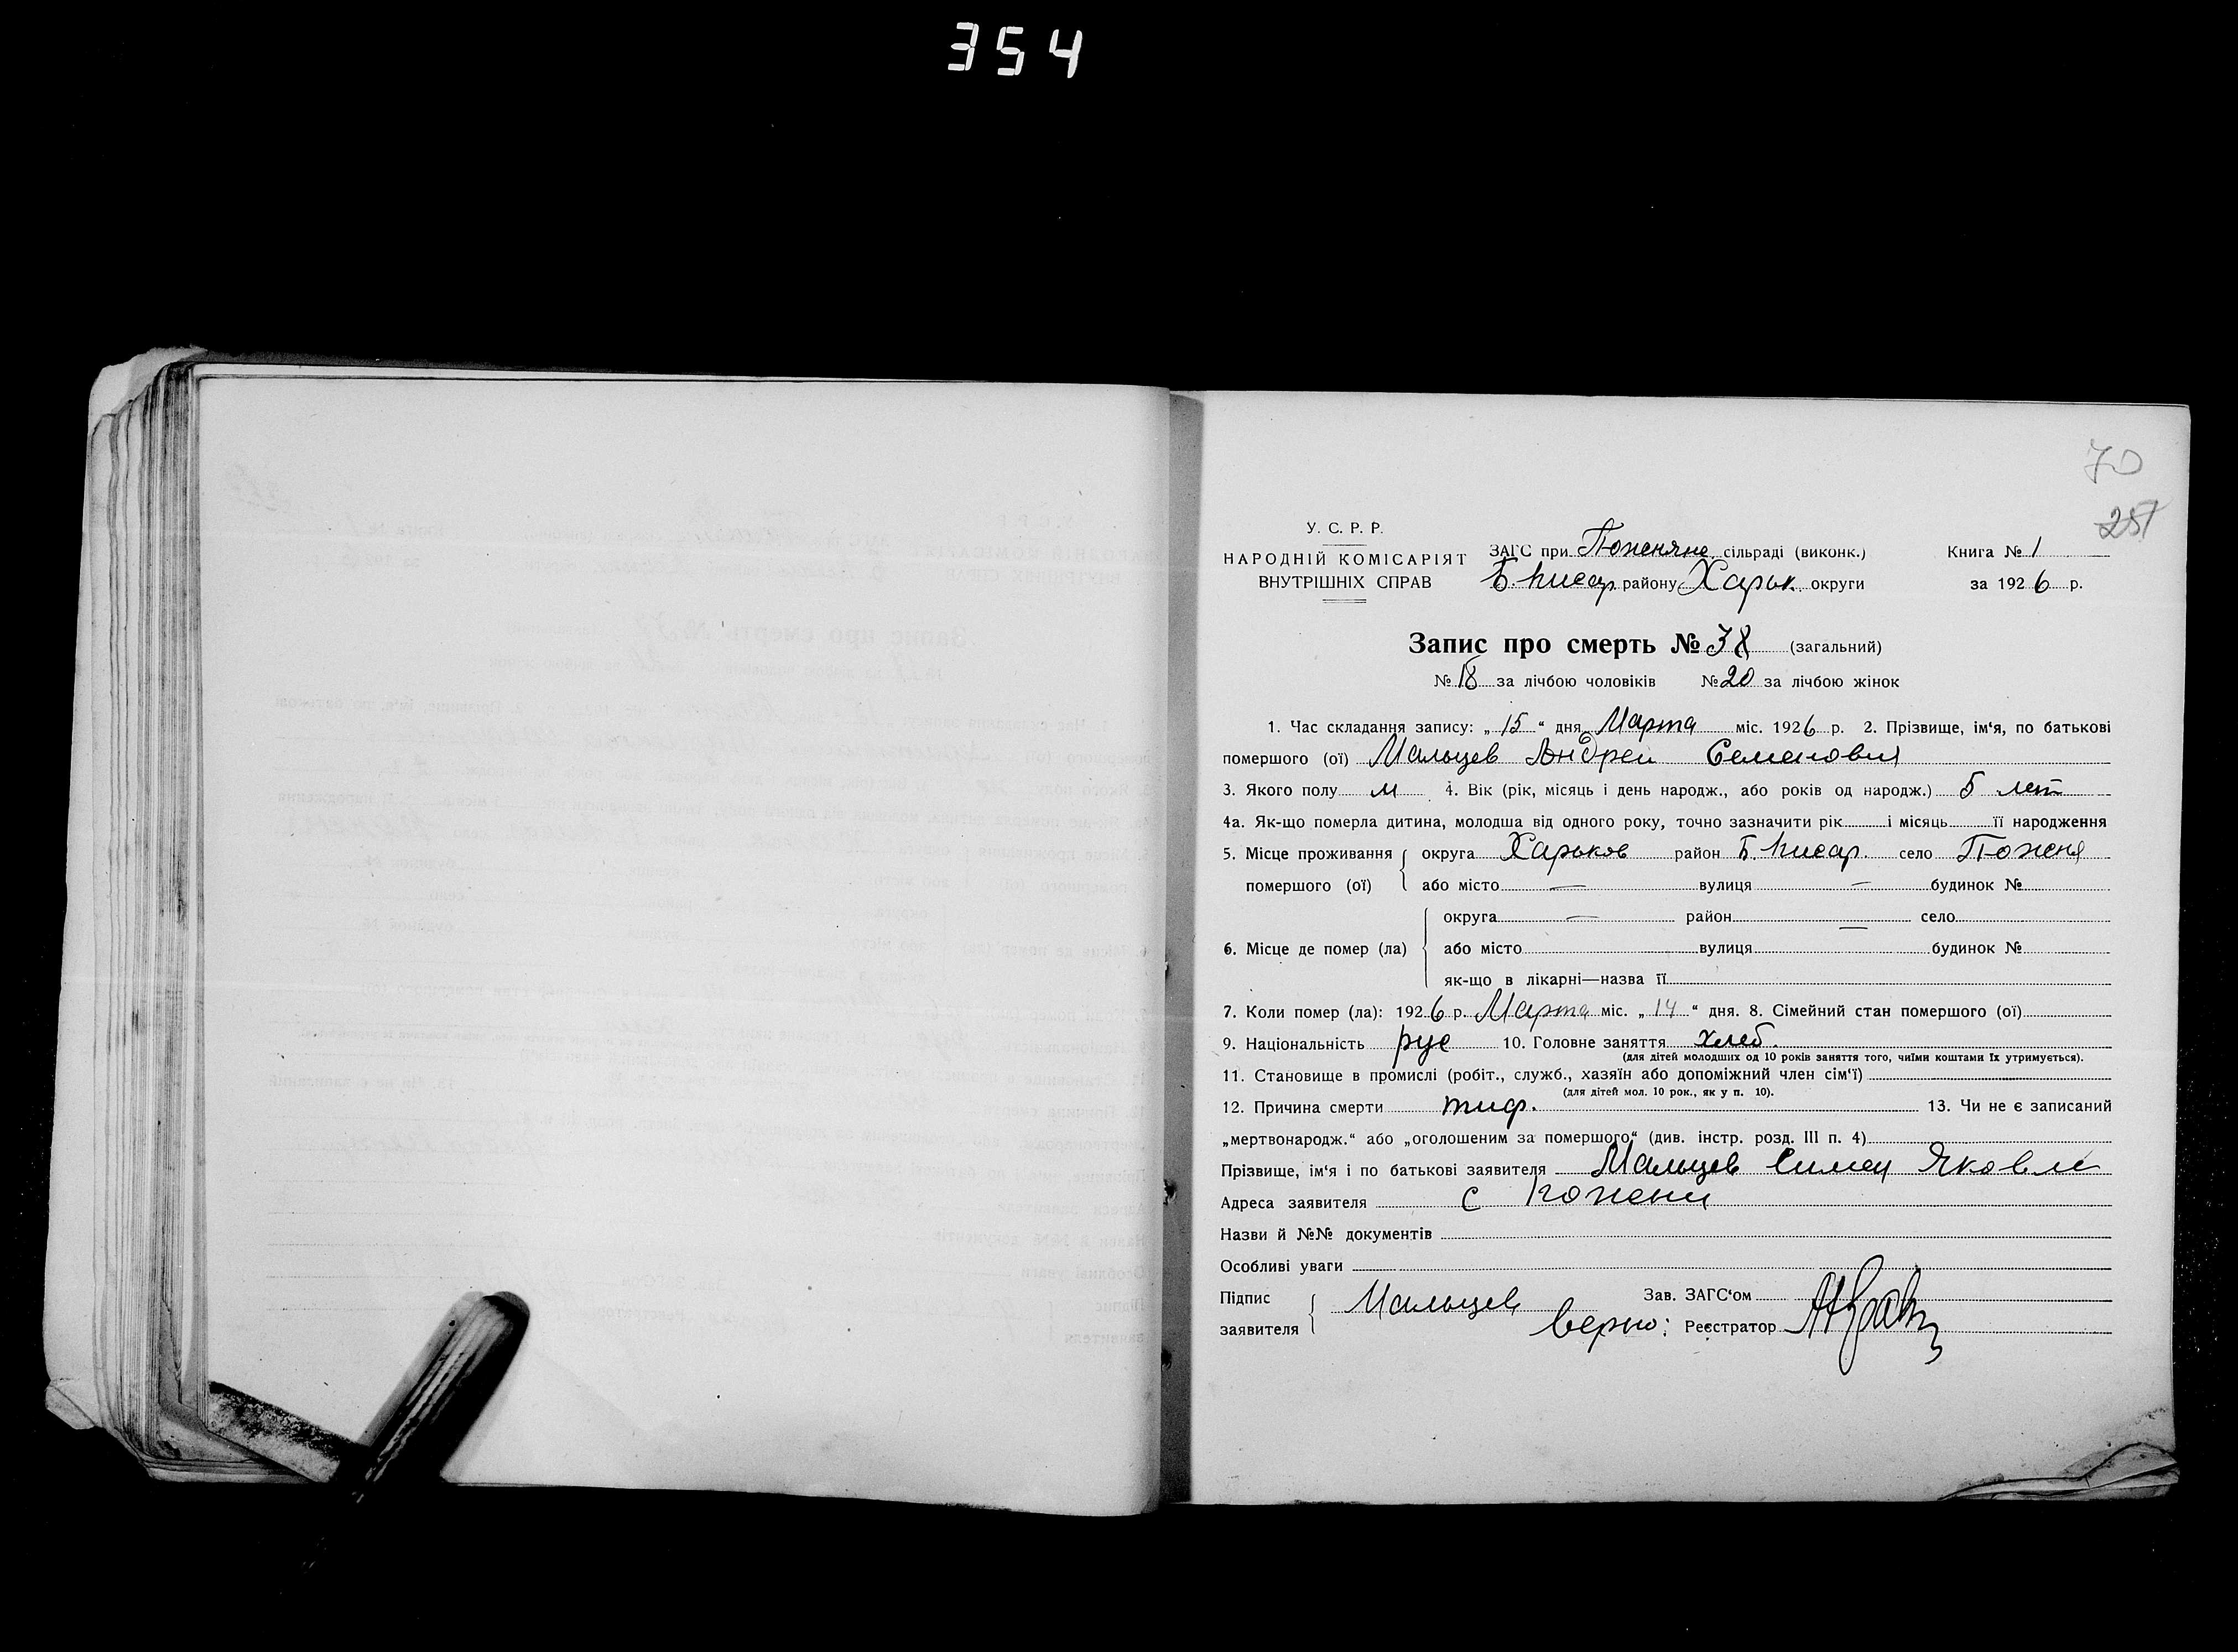 354
70
251
У. С. Р. Р.
НАРОДНІЙ КОМІСАРІЯТ
ВНУТРІШНІХ СПРАВ
ЗАГС при Поженяне сільраді (виконк.) Книга № 1
Б. Писар. району Харьк. округи за 1926 р.
Запис про смерть № 38 (загальний)
№ 18 за лічбою чоловіків № 20 за лічбою жінок
1. Час складання запису: „15“ дня Марта міс. 1926 р. 2. Прізвище, ім‘я, по батькові
помершого (ої) Мальцев Андрей Семенович
3. Якого полу м 4. Вік (рік, місяць і день народж., або років од народж.) 5 лет
4а. Як-що померла дитина, молодша від одного року, точно зазначити рік і місяць її народження
5. Місце проживання помершого (ої) округа Харьков район Б. Писар. село Поженя
або місто — вулиця — будинок №
6. Місце де помер (ла) округа — район — село
або місто вулиця будинок №
як-що в лікарні—назва її
7. Коли помер (ла): 1926 р. Марта міс. „14“ дня. 8. Сімейний стан помершого (ої)
9. Національність рус 10. Головне заняття хлеб.
(для дітей молодших од 10 років заняття того, чиїми коштами їх утримується).
11. Становище в промислі (робіт., служб., хазяїн або допоміжний член сім‘ї)
(для дітей мол. 10 рок., як у п. 10).
12. Причина смерти тиф. 13. Чи не є записаний
„мертвонародж.“ або „оголошеним за помершого“ (див. інстр. розд. III п. 4)
Прізвище, ім‘я і по батькові заявителя Мальцев Симен Яковле
Адреса заявителя с Пожени
Назви й №№ документів
Особливі уваги
Підпис заявителя Мальцев Зав. ЗАГС‘ом
верно: Реєстратор